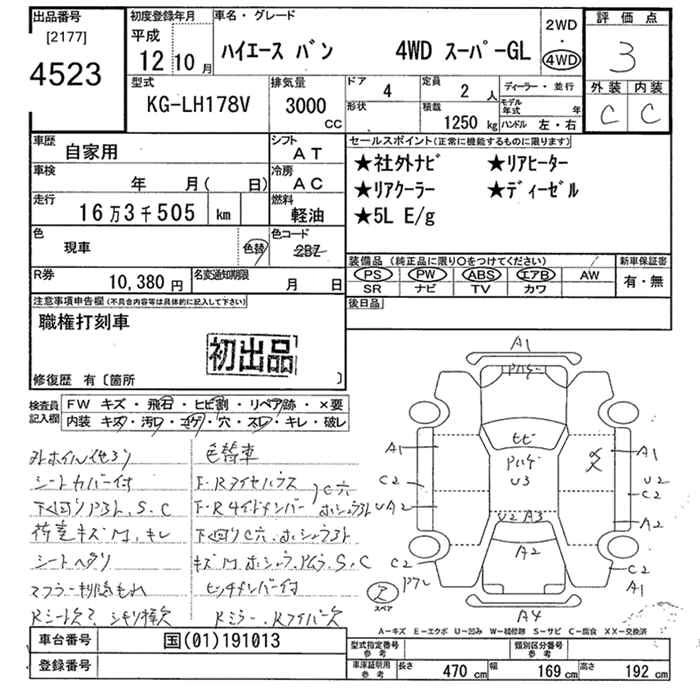 出品番号
[2177]
4523
初度登録年月
平成
12 10月
車名・グレード
ハイエース バン 4WD スーパーGL
2WD
・
4WD
評価点
3
外装 内装
C C
型式
KG-LH178V
排気量
3000
CC
ドア
4
定員
2 人
ディーラー・並行
形状
積載
1250 kg
モデル年式 年
ハンドル 左・右
車歴
自家用
シフト
AT
車検
年 月( 日)
冷房
AC
走行
16万3千505 km
燃料
軽油
色
現車
色替
色コード
2BZ
R券
10,380 円
名変通知期限
月 日
セールスポイント(正常に機能するものに限ります)
★社外ナビ ★リアヒーター
★リアクーラー ★ディーゼル
★5L E/g
装備品 (純正品に限り○をつけてください)
PS PW ABS エアB AW
SR ナビ TV カワ
新車保証書
有・無
後日品
注意事項申告欄(不具合内容等は具体的に記入して下さい)
職権打刻車
初出品
修復歴 有〔箇所 〕
検査員記入欄
FW キズ・飛石・ヒビ割・リペア跡・×要
内装 キズ・汚レ・コゲ・穴・スレ・キレ・破レ
色替車
シートカバー付
下廻りアストS.C
荷室キズM、キレ
シートヘタリ
ヒッチメンバー付
A1
パハゲ
ヒビ
パハゲ
U3
U2 A3
A2
A4
A1
C2
UA2
C2
A1
U2
C2
A2
C2
A1
ア
スペア
A―キズ E―エクボ U―凹み W―補修跡 S―サビ C―腐食 XX―交換済
車台番号
国(01)191013
登録番号
型式指定番号
参考
類別区分番号
参考
車庫証明用
参考
長さ 470 cm 幅 169 cm 高さ 192 cm